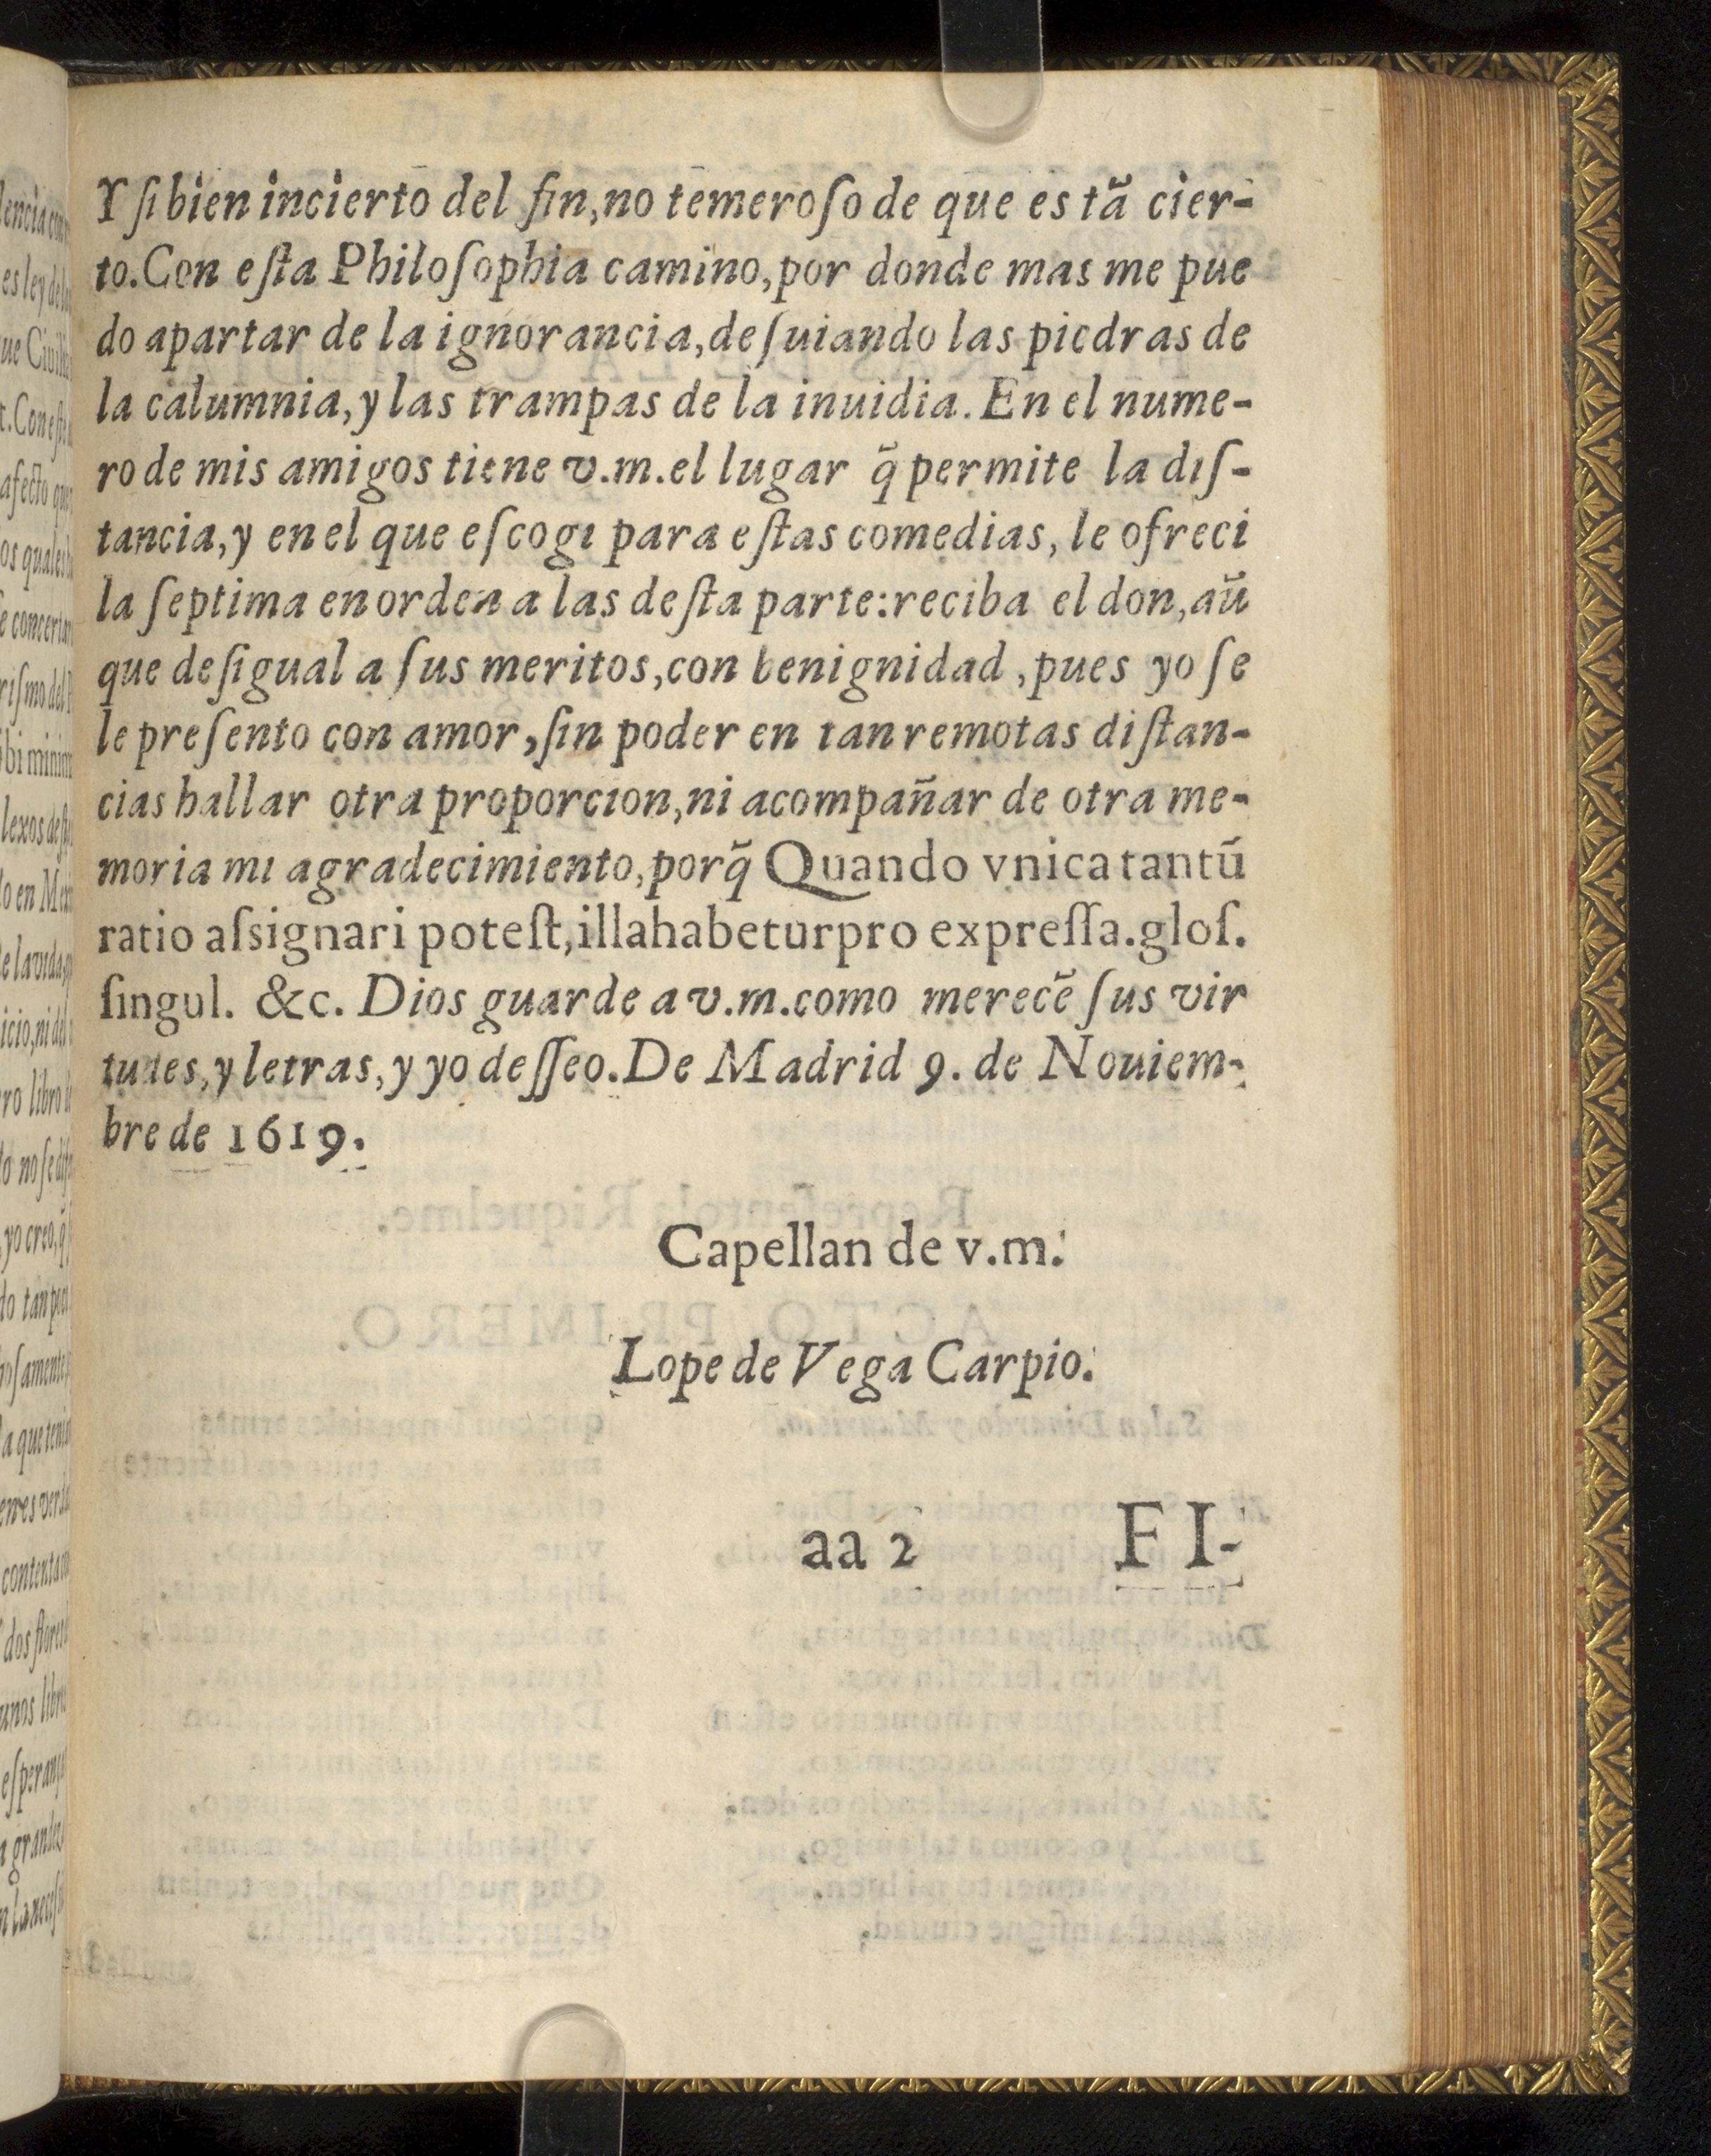 Y ſi bien incierto del fin, no temeroſo de que es tã cier-
to. Con eſta Philoſophia camino, por donde mas me pue
do apartar de la ignorancia, deſuiando las piedras de
la calumnia, y las trampas de la inuidia. En el nume-
ro de mis amigos tiene v.m. el lugar q̃ permite la diſ-
tancia, y en el que eſcogi para eſtas comedias, le ofreci
la ſeptima en orden a las deſta parte: reciba el don, aũ
que deſigual a ſus meritos, con benignidad, pues yo ſe
le preſento con amor, ſin poder en tan remotas diſtan-
cias hallar otra proporcion, ni acompañar de otra me-
moria mi agradecimiento, porq̃ Quando vnica tantũ
ratio aſsignari poteſt, illa habetur pro expreſſa. gloſ.
ſingul. &c. Dios guarde a v.m. como merecẽ ſus vir
tudes, y letras, y yo deſſeo. De Madrid 9. de Nouiem-
bre de 1619.
Capellan de v.m.
Lope de Vega Carpio.
aa 2 FI-